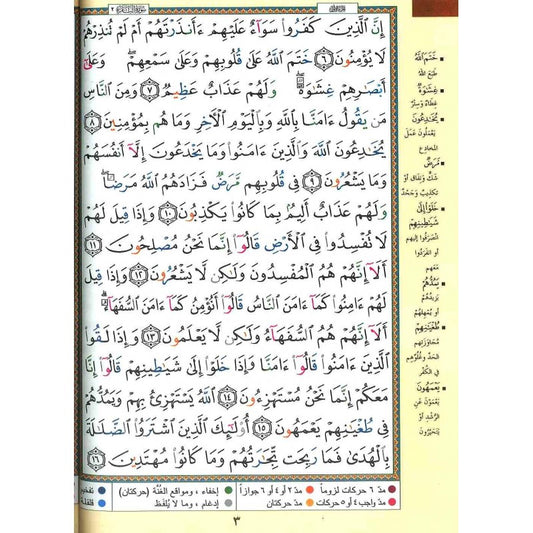 سورة البقرة ٢
إِنَّ ٱلَّذِينَ كَفَرُوا۟ سَوَآءٌ عَلَيْهِمْ ءَأَنذَرْتَهُمْ أَمْ لَمْ تُنذِرْهُمْ
لَا يُؤْمِنُونَ ٦ خَتَمَ ٱللَّهُ عَلَىٰ قُلُوبِهِمْ وَعَلَىٰ سَمْعِهِمْ ۖ وَعَلَىٰٓ
أَبْصَٰرِهِمْ غِشَٰوَةٌ ۖ وَلَهُمْ عَذَابٌ عَظِيمٌ ٧ وَمِنَ ٱلنَّاسِ
مَن يَقُولُ ءَامَنَّا بِٱللَّهِ وَبِٱلْيَوْمِ ٱلْءَاخِرِ وَمَا هُم بِمُؤْمِنِينَ ٨
يُخَٰدِعُونَ ٱللَّهَ وَٱلَّذِينَ ءَامَنُوا۟ وَمَا يَخْدَعُونَ إِلَّآ أَنفُسَهُمْ
وَمَا يَشْعُرُونَ ٩ فِى قُلُوبِهِم مَّرَضٌ فَزَادَهُمُ ٱللَّهُ مَرَضًا ۖ
وَلَهُمْ عَذَابٌ أَلِيمٌۢ بِمَا كَانُوا۟ يَكْذِبُونَ ١٠ وَإِذَا قِيلَ لَهُمْ
لَا تُفْسِدُوا۟ فِى ٱلْأَرْضِ قَالُوٓا۟ إِنَّمَا نَحْنُ مُصْلِحُونَ ١١
أَلَآ إِنَّهُمْ هُمُ ٱلْمُفْسِدُونَ وَلَٰكِن لَّا يَشْعُرُونَ ١٢ وَإِذَا قِيلَ
لَهُمْ ءَامِنُوا۟ كَمَآ ءَامَنَ ٱلنَّاسُ قَالُوٓا۟ أَنُؤْمِنُ كَمَآ ءَامَنَ ٱلسُّفَهَآءُ ۗ
أَلَآ إِنَّهُمْ هُمُ ٱلسُّفَهَآءُ وَلَٰكِن لَّا يَعْلَمُونَ ١٣ وَإِذَا لَقُوا۟
ٱلَّذِينَ ءَامَنُوا۟ قَالُوٓا۟ ءَامَنَّا وَإِذَا خَلَوْا۟ إِلَىٰ شَيَٰطِينِهِمْ قَالُوٓا۟ إِنَّا
مَعَكُمْ إِنَّمَا نَحْنُ مُسْتَهْزِءُونَ ١٤ ٱللَّهُ يَسْتَهْزِئُ بِهِمْ وَيَمُدُّهُمْ
فِى طُغْيَٰنِهِمْ يَعْمَهُونَ ١٥ أُو۟لَٰٓئِكَ ٱلَّذِينَ ٱشْتَرَوُا۟ ٱلضَّلَٰلَةَ
بِٱلْهُدَىٰ فَمَا رَبِحَت تِّجَٰرَتُهُمْ وَمَا كَانُوا۟ مُهْتَدِينَ ١٦
خَتَمَ اللهُ
طَبَعَ اللهُ
غِشَاوَةٌ
غِطَاءٌ وَسِتْرٌ
يُخَادِعُونَ
يَعْمَلُونَ عَمَلَ
المُخَادِعِ
مَرَضٌ
شَكٌّ وَنِفَاقٌ أَوْ
تَكْذِيبٌ وَجَحْدٌ
خَلَوْا إِلَى
شَيَاطِينِهِمْ
انْصَرَفُوا إِلَيْهِم
أَوْ انْفَرَدُوا
مَعَهُم
يَمُدُّهُمْ
يَزِيدُهُم
أَوْ يُمْهِلُهُمْ
طُغْيَانِهِمْ
مُجَاوَزَتِهِم
الحَدَّ وَغُلُوِّهِم
فِي الكُفْرِ
يَعْمَهُونَ
يَعْمَوْنَ عَنِ
الرُّشْدِ أَوْ
يَتَحَيَّرُونَ
مدّ ٦ حركات لزوماً مدّ ٢ أو ٤ أو ٦ جوازاً إخفاء ، ومواقع الغُنَّة (حركتان) تفخيم
مدّ واجب ٤ أو ٥ حركات مدّ حركتان إدغام ، وما لا يُلفَظ قلقلة
٣